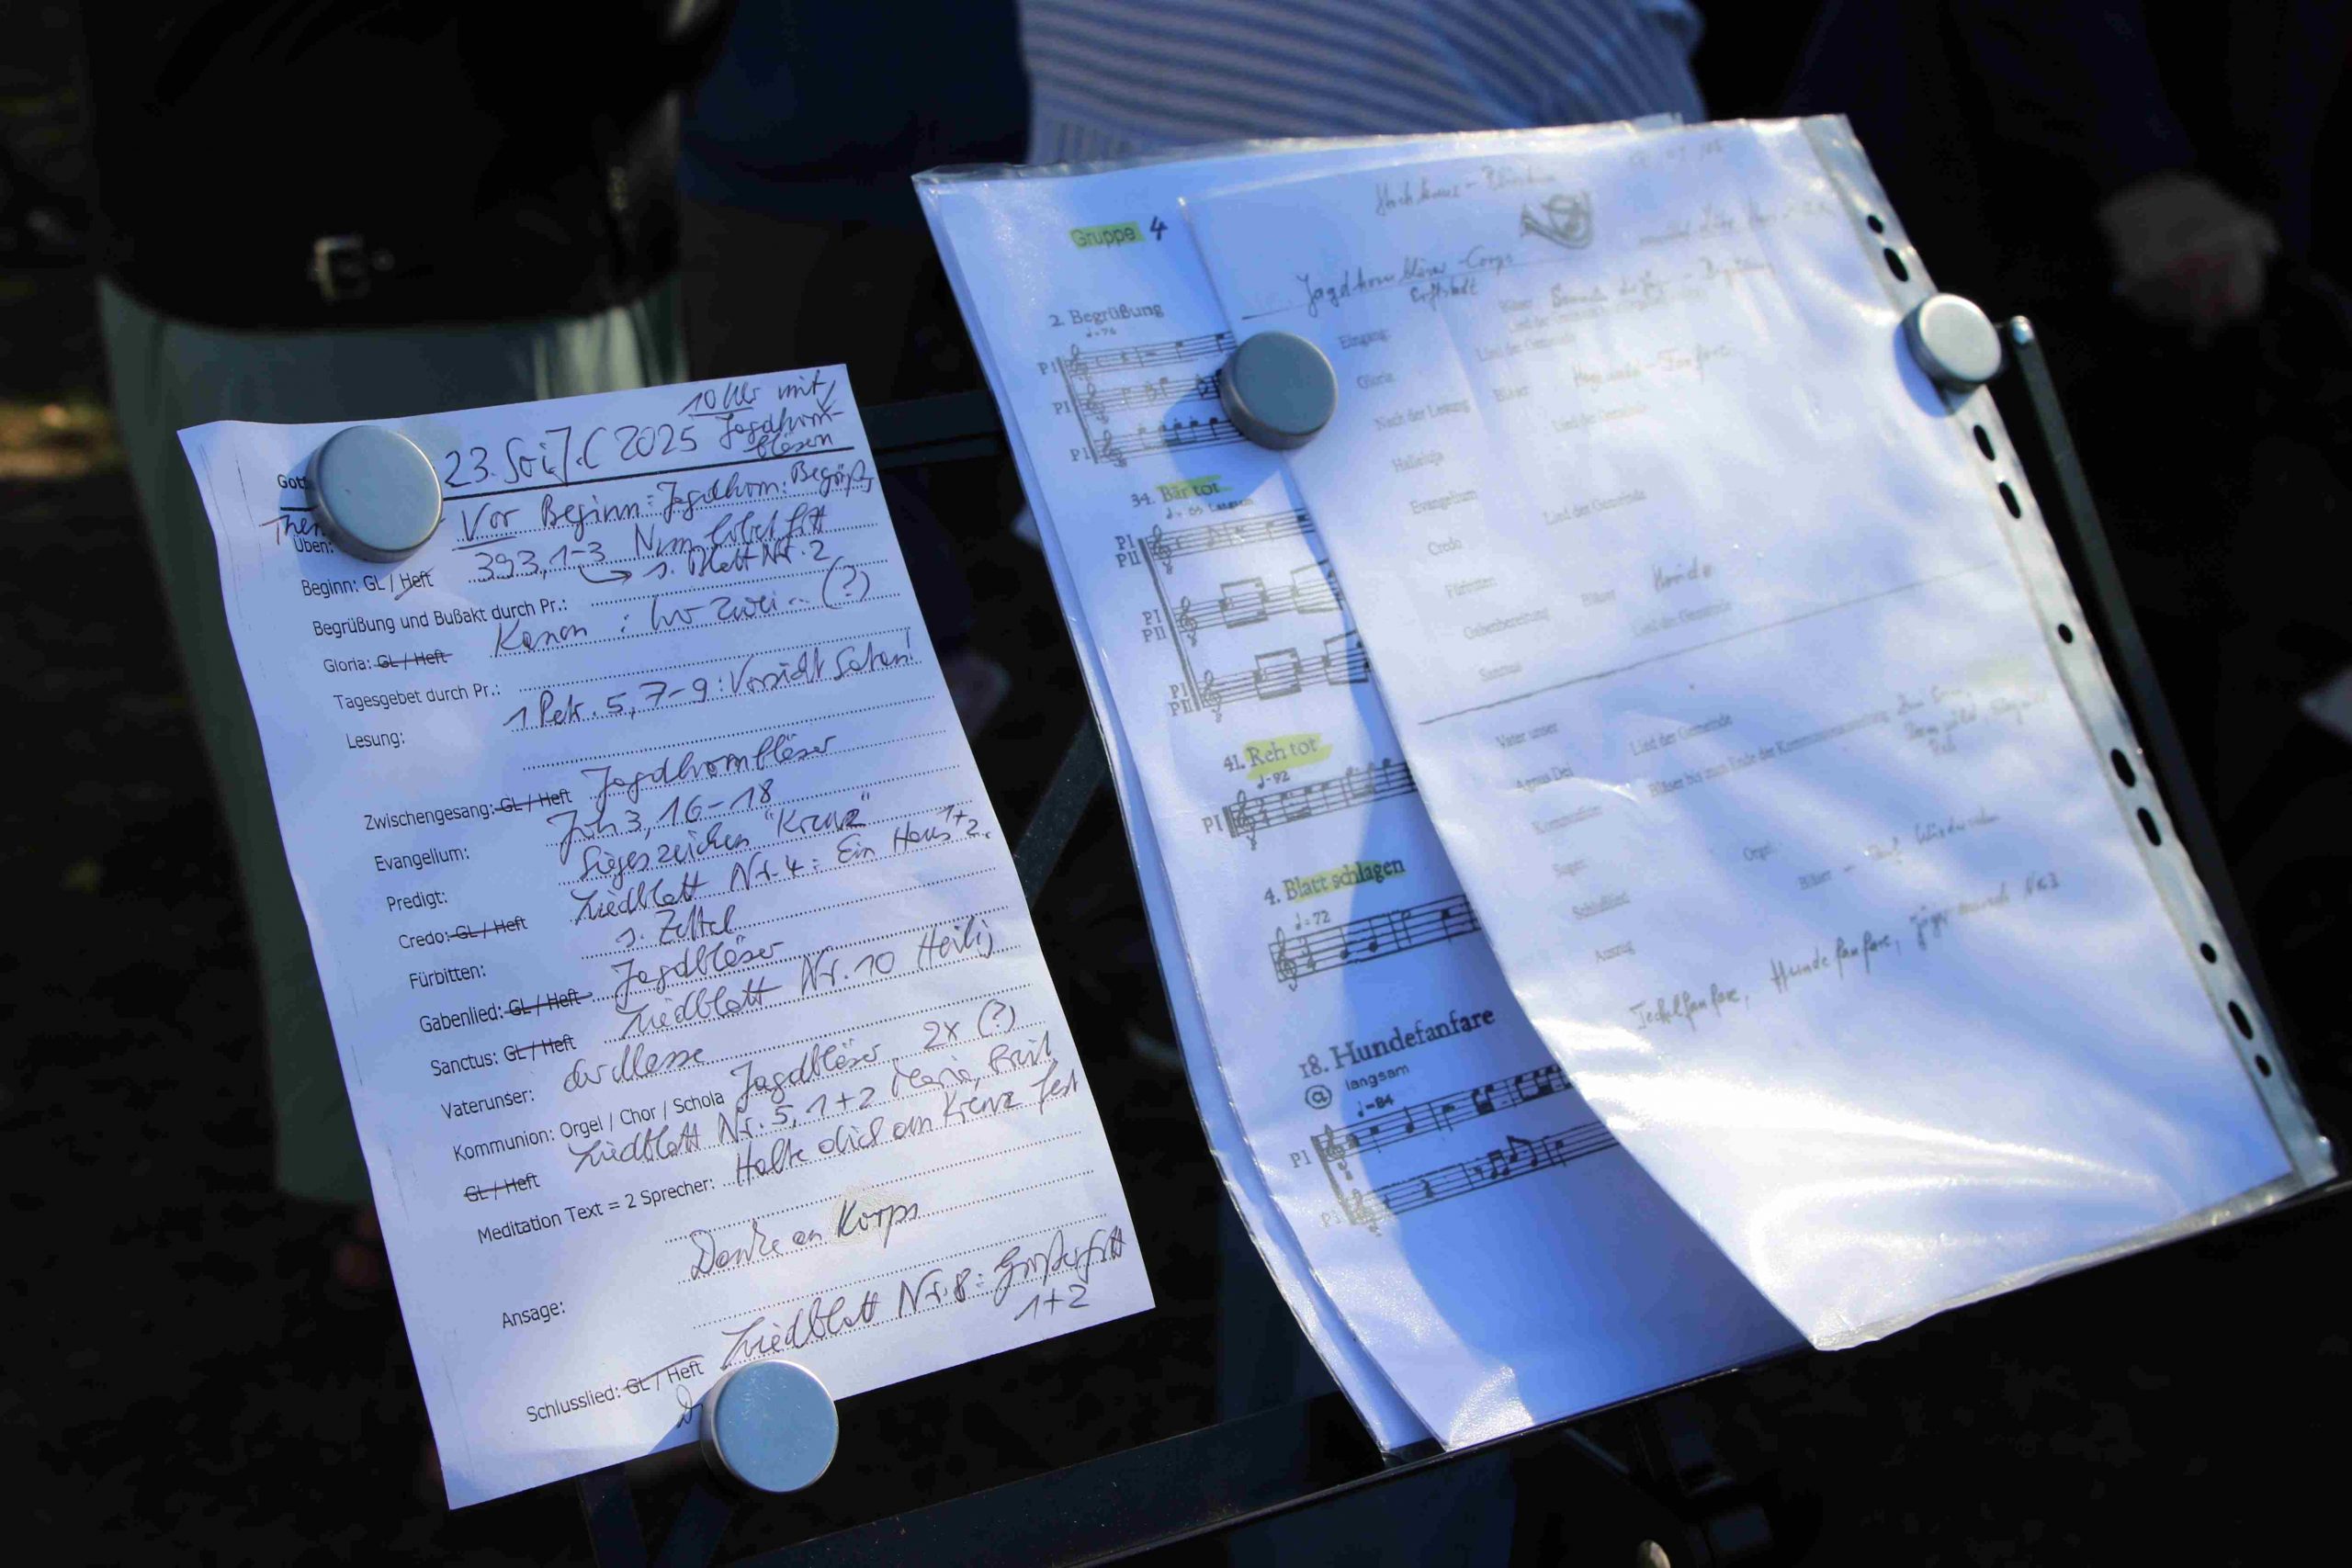 10 Uhr mit
23. So i. J. C 2025 Jagdhorn-
bläsern
Vor Beginn: Jagdhorn: Begrüß.
Üben:
393, 1-3 Nun lobet Gott
Beginn: GL / Heft
s. Blatt Nr. 2
Begrüßung und Bußakt durch Pr.:
Gloria: GL / Heft Kanon: Wo zwei.. (?)
Tagesgebet durch Pr.:
Lesung: 1 Petr. 5, 7-9: Vorsicht Satan!
Zwischengesang: GL / Heft Jagdhornbläser
Evangelium: Joh 3, 16-18
Predigt: Siegeszeichen "Kreuz"
Credo: GL / Heft Liedblatt Nr. 4: Ein Haus 1+2.
Fürbitten: s. Zettel
Gabenlied: GL / Heft Jagdbläser
Sanctus: GL / Heft Liedblatt Nr. 10 Heilig
Vaterunser: der Messe
Kommunion: Orgel / Chor / Schola Jagdbläser 2x (?)
GL / Heft Liedblatt Nr. 5, 1+2 Maria,
Meditation Text = 2 Sprecher: Halte dich am Kreuz fest
Danke an Korps
Ansage:
Schlusslied: GL / Heft Liedblatt Nr. 8: Großer Gott
1+2
Gruppe 4
2. Begrüßung
♩=76
PI
PI
PI
34. Bär tot
♩= 63 Langsam
PI
PII
PI
PII
PI
PII
41. Reh tot
♩=92
PI
4. Blatt schlagen
♩=72
18. Hundefanfare
a langsam
♩=84
PI
Jagdhornbläser-Corps
Erftstadt
Eingang:
Lied der Gemeinde
Gloria
Nach der Lesung Bläser
Halleluja Lied der Gemeinde
Evangelium
Credo Lied der Gemeinde
Fürbitten
Gabenbereitung Bläser
Sanctus Lied der Gemeinde
Vater unser
Agnus Dei Lied der Gemeinde
Kommunion Bläser bis zum Ende der Kommunionausteilung
Segen
Schlußlied Orgel
Auszug Bläser - Auf Wiedersehn
Teckelfanfare, Hundefanfare, Jägermarsch Nr 3